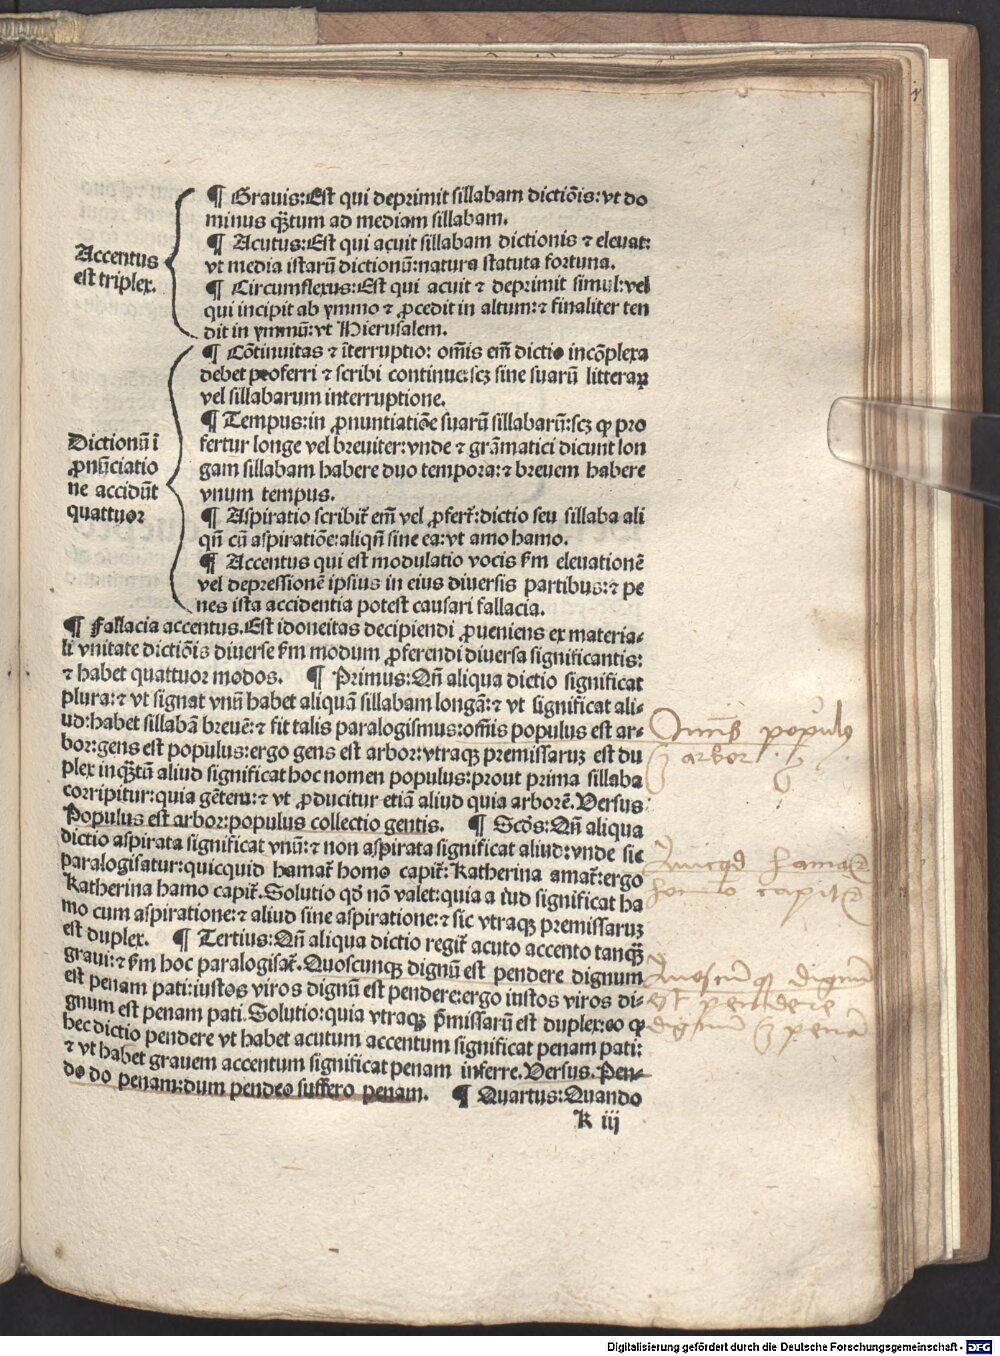 Accentus
est triplex.
¶ Grauis: Est qui deprimit sillabam dictiõis: vt do
minus q̃ȝtum ad mediam sillabam.
¶ Acutus: Est qui acuit sillabam dictionis ⁊ eleuat:
vt media istarũ dictionũ: natura statuta fortuna.
¶ Circumflexus: Est qui acuit ⁊ deprimit simul: vel
qui incipit ab ymmo ⁊ ꝓcedit in altum: ⁊ finaliter ten
dit in ymmũ: vt Hierusalem.
Dictionũ ĩ
ꝓnũciatio
ne accidũt
quattuor
¶ Cõtinuitas ⁊ ĩterruptio: om̃is em̃ dictio incõplexa
debet proferri ⁊ scribi continue: scȝ sine suarũ litteraꝝ
vel sillabarum interruptione.
¶ Tempus: in ꝓnuntiatiõe suarũ sillabarũ: scȝ ꝙ pro
fertur longe vel breuiter: vnde ⁊ grãmatici dicunt lon
gam sillabam habere duo tempora: ⁊ breuem habere
vnum tempus.
¶ Aspiratio scribit̃ em̃ vel ꝓfert̃: dictio seu sillaba ali
qñ cũ aspiratiõe: aliqñ sine ea: vt amo hamo.
¶ Accentus qui est modulatio vocis ẜm eleuationẽ
vel depressionẽ ipsius in eius diuersis partibus: ⁊ pe
nes ista accidentia potest causari fallacia.
¶ Fallacia accentus. Est idoneitas decipiendi ꝓueniens ex materia-
li vnitate dictiõis diuerse ẜm modum ꝓferendi diuersa significantis:
⁊ habet quattuor modos. ¶ Primus: Qñ aliqua dictio significat
plura: ⁊ vt signat vnũ habet aliquã sillabam longã: ⁊ vt significat ali-
ud: habet sillabã breuẽ: ⁊ fit talis paralogismus: om̃is populus est ar-
bor: gens est populus: ergo gens est arbor: vtraqȝ premissaruȝ est du
plex inq̃ȝtũ aliud significat hoc nomen populus: prout prima sillaba
corripitur: quia gẽtem: ⁊ vt ꝓducitur etiã aliud quia arborẽ. Versus
Populus est arbor: populus collectio gentis. ¶ Scd̃s: Qñ aliqua
dictio aspirata significat vnũ: ⁊ non aspirata significat aliud: vnde sic
paralogisatur: quicquid hamat̃ homo capit̃: Katherina amat̃: ergo
Katherina hamo capit̃. Solutio qđ nõ valet: quia aliud significat ha
mo cum aspiratione: ⁊ aliud sine aspiratione: ⁊ sic vtraqȝ premissaruȝ
est duplex. ¶ Tertius: Qñ aliqua dictio regit̃ acuto accento tanq̃ȝ
graui: ⁊ ẜm hoc paralogisat̃. Quoscunqȝ dignũ est pendere dignum
est penam pati: iustos viros dignũ est pendere: ergo iustos viros di-
gnum est penam pati. Solutio: quia vtraqȝ p̃missarũ est duplex: eo ꝙ
hec dictio pendere vt habet acutum accentum significat penam pati:
⁊ vt habet grauem accentum significat penam inferre. Versus. Pen-
do do penam: dum pendeo suffero penam. ¶ Quartus: Quando
K iij
Om̃is popul9
arbor
Quicqd hamat
homo capit
Quoscũqȝ dignũ
est pendere
dignũ penã
Digitalisierung gefördert durch die Deutsche Forschungsgemeinschaft - DFG